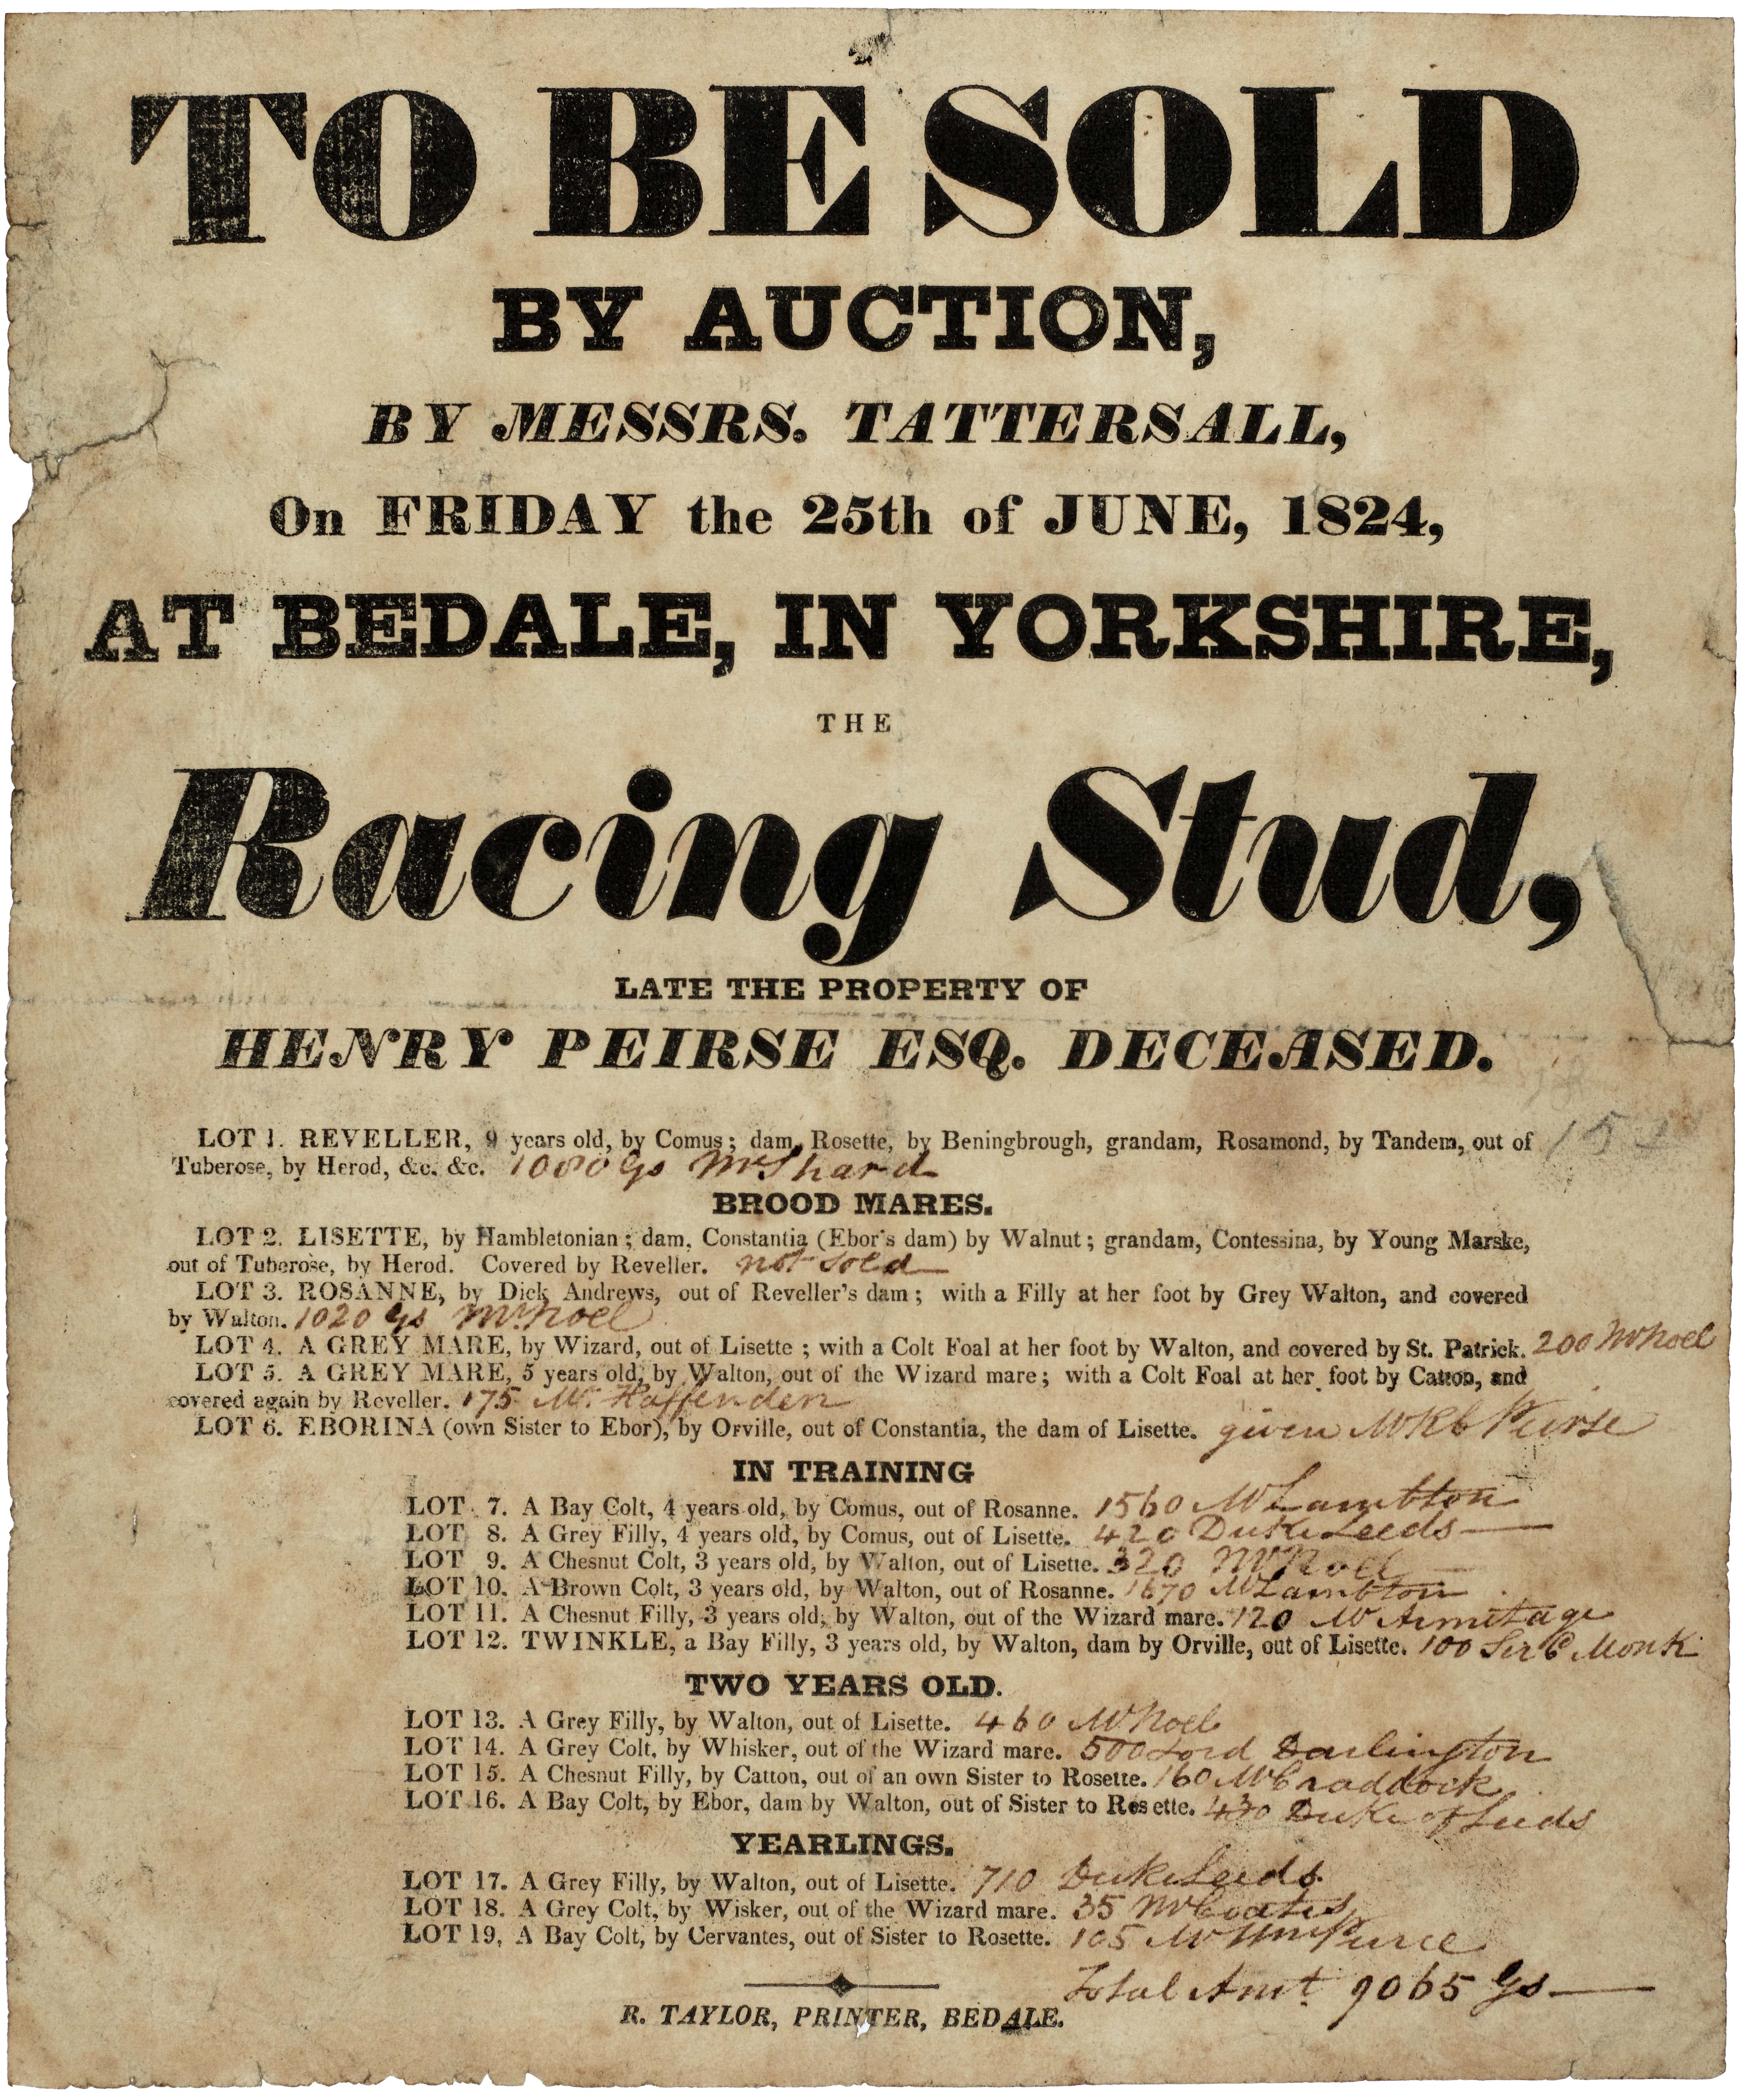 TO BE SOLD
BY AUCTION,
BY MESSRS. TATTERSALL,
On FRIDAY the 25th of JUNE, 1824,
AT BEDALE, IN YORKSHIRE,
THE
Racing Stud,
LATE THE PROPERTY OF
HENRY PEIRSE ESQ. DECEASED.
LOT 1. REVELLER, 9 years old, by Comus; dam, Rosette, by Beningbrough, grandam, Rosamond, by Tandem, out of
Tuberose, by Herod, &c. &c. 1080 Gs Mr Shard
BROOD MARES.
LOT 2. LISETTE, by Hambletonian; dam, Constantia (Ebor's dam) by Walnut; grandam, Contessina, by Young Marske,
out of Tuberose, by Herod. Covered by Reveller. not sold
LOT 3. ROSANNE, by Dick Andrews, out of Reveller's dam; with a Filly at her foot by Grey Walton, and covered
by Walton. 1020 Gs Mr Noel
LOT 4. A GREY MARE, by Wizard, out of Lisette; with a Colt Foal at her foot by Walton, and covered by St. Patrick. 200 Mr Noel
LOT 5. A GREY MARE, 5 years old, by Walton, out of the Wizard mare; with a Colt Foal at her foot by Catton, and
covered again by Reveller. 175 Mr Haffenden
LOT 6. EBORINA (own Sister to Ebor), by Orville, out of Constantia, the dam of Lisette. given Mr Peirse
IN TRAINING
LOT 7. A Bay Colt, 4 years old, by Comus, out of Rosanne. 1560 Mr Lambton
LOT 8. A Grey Filly, 4 years old, by Comus, out of Lisette. 420 Duke Leeds
LOT 9. A Chesnut Colt, 3 years old, by Walton, out of Lisette. 320 Mr Noel
LOT 10. A Brown Colt, 3 years old, by Walton, out of Rosanne. 1670 Mr Lambton
LOT 11. A Chesnut Filly, 3 years old, by Walton, out of the Wizard mare. 120 Mr Armitage
LOT 12. TWINKLE, a Bay Filly, 3 years old, by Walton, dam by Orville, out of Lisette. 100 Sir C Monk
TWO YEARS OLD.
LOT 13. A Grey Filly, by Walton, out of Lisette. 460 Mr Noel
LOT 14. A Grey Colt, by Whisker, out of the Wizard mare. 500 Lord Darlington
LOT 15. A Chesnut Filly, by Catton, out of an own Sister to Rosette. 160 Mr Craddock
LOT 16. A Bay Colt, by Ebor, dam by Walton, out of Sister to Rosette. 430 Duke of Leeds
YEARLINGS.
LOT 17. A Grey Filly, by Walton, out of Lisette. 710 Duke Leeds
LOT 18. A Grey Colt, by Wisker, out of the Wizard mare. 35 Mr Coates
LOT 19, A Bay Colt, by Cervantes, out of Sister to Rosette. 105 Mr
Total Amt. 9065 Gs
R. TAYLOR, PRINTER, BEDALE.